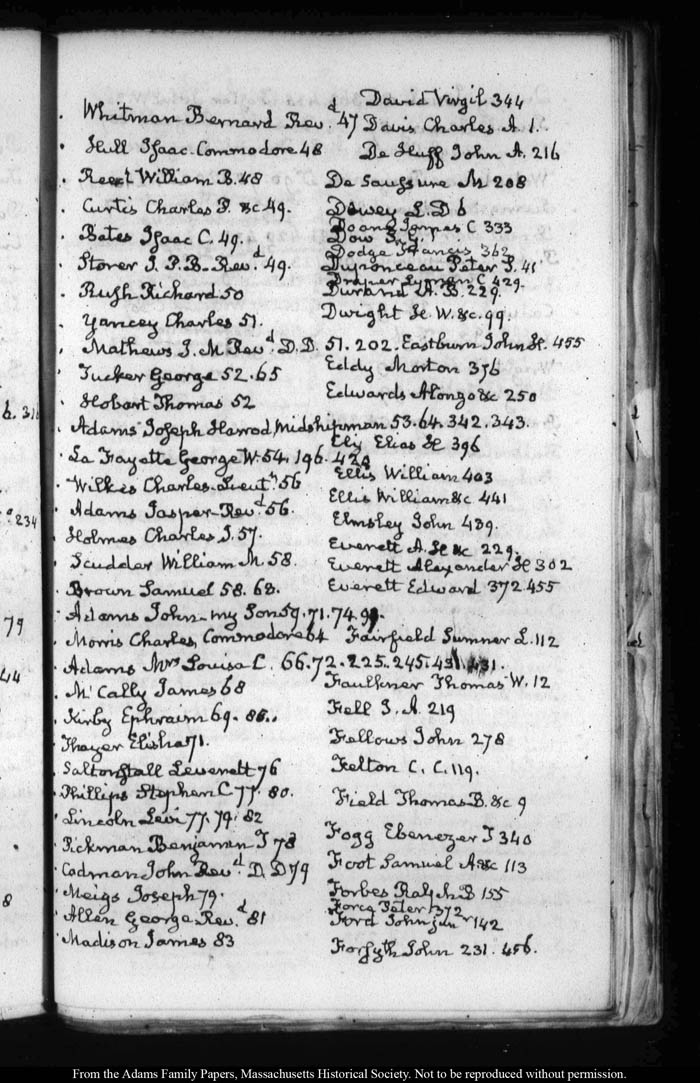 Whitman Bernard Revd. 47
Hull Isaac Commodore 48
Reed William B. 48
Curtis Charles P. &c 49.
Bates Isaac C. 49.
Storer J. P. B. Revd. 49.
Rush Richard 50
Yancey Charles 51.
Mathews J. M Revd. D.D. 51. 202.
Tucker George 52. 65
Hobart Thomas 52
Adams Joseph Harrod, Midshipman 53. 64. 342. 343.
La Fayette George W. 54. 196. 420
Wilkes Charles Lieutt. 56
Adams Jasper Revd. 56.
Holmes Charles J. 57.
Scudder William M. 58.
Brown Samuel 58. 68.
Adams John my Son 59. 71. 74.
Morris Charles, Commodore 64
Adams Mrs Louisa C. 66. 72. 225. 245. 431.
McCally James 68
Kirby Ephraim 69. 86.
Thayer Elisha 71.
Saltonstall Leverett 76
Phillips Stephen C. 77. 80.
Lincoln Levi 77. 79. 82
Pickman Benjamin T 78
Codman John Revd. D. D 79
Meigs Joseph 79.
Allen George Revd. 81
Madison James 83
David Virgil 344
Davis Charles A. 1.
De Huff John A. 216
De Saussure M 208
Dewey L. D 6
Doane C 333
Dow
Dodge Francis 362
Duponceau Peter S. 41
Draper Lyman C 429.
Durand A. B. 229.
Dwight H. W. &c. 99.
Eastburn John H. 455
Eddy Morton 376
Edwards Alonzo &c 250
Ely Elias H 396
Ellis William 403
Ellis William &c 441
Elmsley John 439.
Everett A. H &c 229.
Everett Alexander H 302
Everett Edward 372 455
Fairfield Sumner L. 112
Faulkner Thomas W. 12
Fell J. A. 219
Fellows John 278
Felton C. C. 119.
Field Thomas B. &c 9
Fogg Ebenezer T 340
Foot Samuel A &c 113
Forbes Ralph B 155
Force Peter 372
Ford John junr 142
Forsyth John 231. 456.
b. 31
234
79
44
8
From the Adams Family Papers, Massachusetts Historical Society. Not to be reproduced without permission.